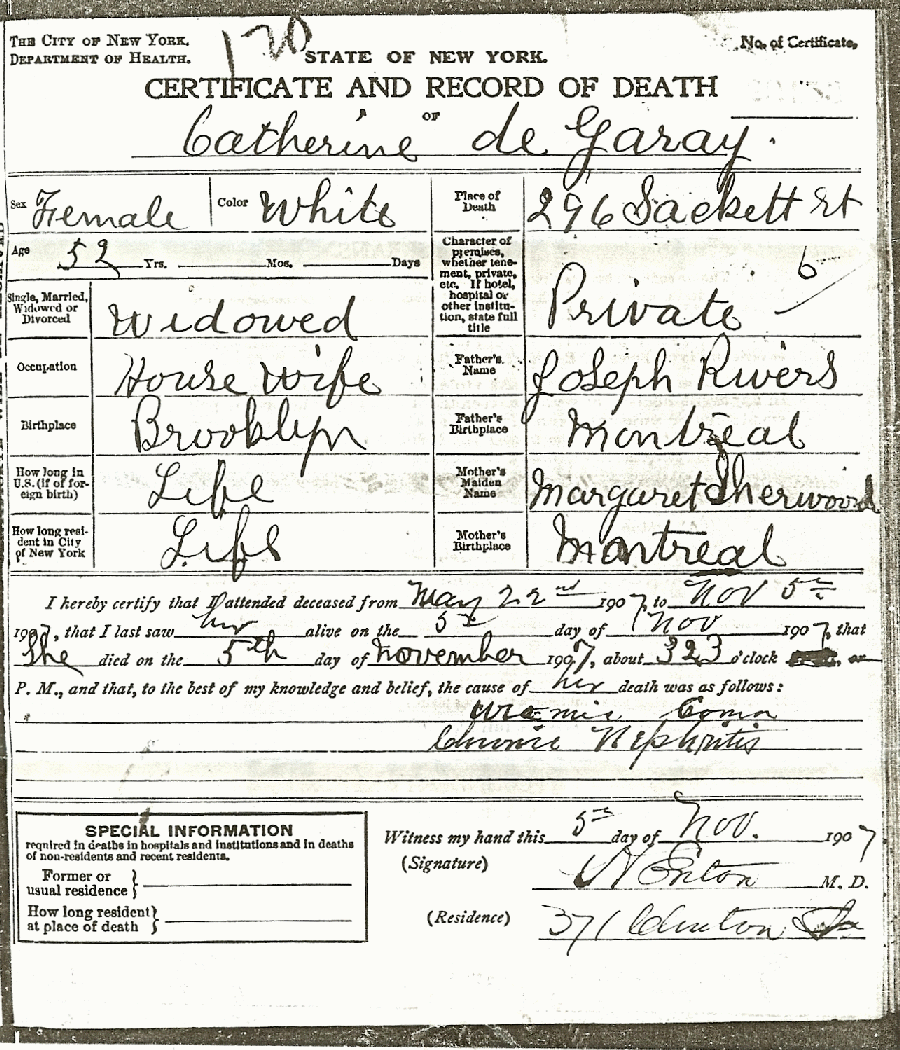 THE CITY OF NEW YORK.
DEPARTMENT OF HEALTH.
120
STATE OF NEW YORK.
No. of Certificate,
CERTIFICATE AND RECORD OF DEATH
OF
Catherine de Garay.
Sex Female Color White
Place of Death 296 Sackett St
Age 52 Yrs. Mos. Days
Character of premises, whether tenement, private, etc. If hotel, hospital or other institution, state full title
6
Private
Single, Married, Widowed or Divorced Widowed
Occupation House wife
Father's Name Joseph Rivers
Birthplace Brooklyn
Father's Birthplace Montreal
How long in U.S. (if of foreign birth) Life
Mother's Maiden Name Margaret Sherwood
How long resident in City of New York Life
Mother's Birthplace Montreal
I hereby certify that I attended deceased from May 22nd 1907, to Nov 5th
1907, that I last saw her alive on the 5th day of Nov 1907, that
She died on the 5th day of November 1907, about 323 o'clock or
P. M., and that, to the best of my knowledge and belief, the cause of her death was as follows:
Uremic Coma
Chronic Nephritis
SPECIAL INFORMATION
required in deaths in hospitals and institutions and in deaths
of non-residents and recent residents.
Former or
usual residence
How long resident
at place of death
Witness my hand this 5th day of Nov. 1907
(Signature) M. D.
(Residence) 371 Clinton St